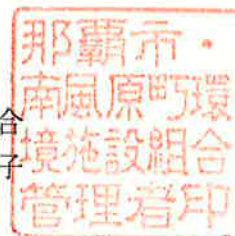 那覇市・
南風原町環
境施設組合
管理者印
合
子